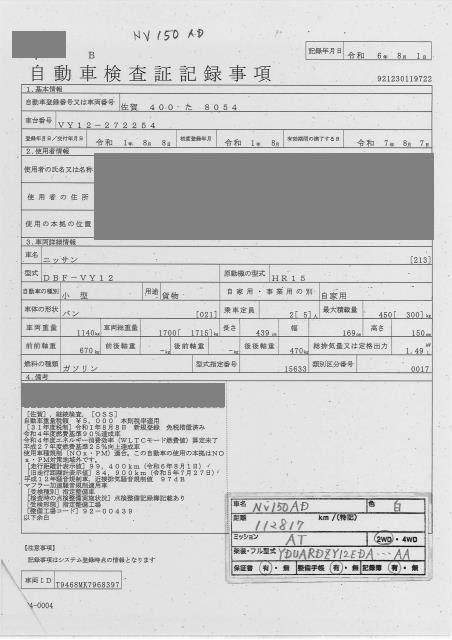 NV150 AD
B
記録年月日 令和 6年 8月 1日
自動車検査証記録事項
921230119722
1.基本情報
自動車登録番号又は車両番号 佐賀 400 た 8054
車台番号 VY12-272254
登録年月日/交付年月日 令和 1年 8月 8日 初度登録年月 令和 1年 8月 有効期間の満了する日 令和 7年 8月 7日
2.使用者情報
使用者の氏名又は名称
使用者の住所
使用の本拠の位置
3.車両詳細情報
車名 ニッサン [213]
型式 DBF-VY12 原動機の型式 HR15
自動車の種別 小型 用途 貨物 自家用・事業用の別 自家用
車体の形状 バン [021] 乗車定員 2[ 5]人 最大積載量 450[ 300]kg
車両重量 1140kg 車両総重量 1700[ 1715]kg 長さ 439cm 幅 169cm 高さ 150cm
前前軸重 670kg 前後軸重 -kg 後前軸重 -kg 後後軸重 470kg 総排気量又は定格出力 1.49
燃料の種類 ガソリン 型式指定番号 15633 類別区分番号 0017
4.備考
[佐賀],継続検査,[OSS]
自動車重量税額 ¥5,000 本則税率適用
[31年度税制]令和1年8月8日 新規登録 免税措置済み
令和4年度燃費基準90%達成車
令和4年度エネルギー消費効率(WLTCモード燃費値)算定未了
平成27年度燃費基準25%向上達成車
使用車種規制(NOx・PM)適合,この自動車の使用の本拠はNO
x・PM対策地域外です。
[走行距離計表示値]99,400km(令和6年8月1日)
[旧走行距離計表示値]84,900km(令和5年7月27日)
平成12年騒音規制車,近接排気騒音規制値 97dB
マフラー加速騒音規制適用車
[受検種別]指定整備車
[検査時の点検整備実施状況]点検整備記録簿記載あり
[受検形態]指定整備工場
[整備工場コード]92-00439
以下余白
車名 NV150AD 色 白
距離 112817 km /(特記)
ミッション AT 2WD・4WD
架装・フル型式 YDUARDZY12EDA---AA
保証書 有・無 整備手帳 有・無 記録簿 有・無
[注意事項]
検査証記録事項はシステム登録時点の情報となります
車両ID T9468MK7968397
4-0004